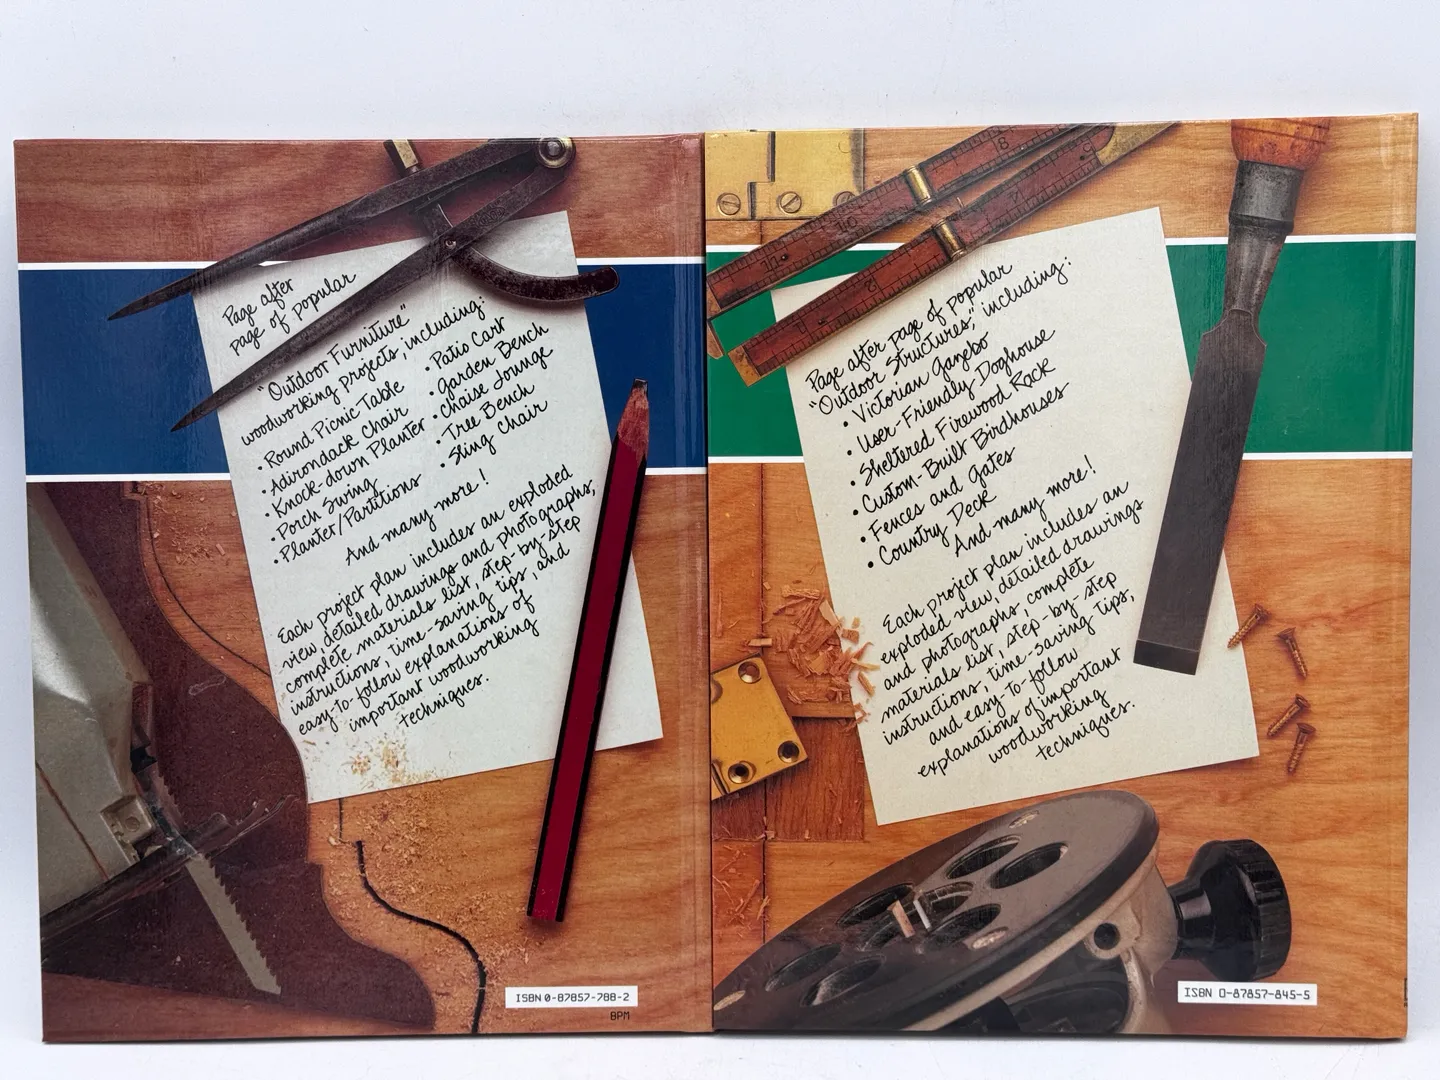 Page after
page of popular
"Outdoor Furniture"
woodworking projects, including:
• Round Picnic Table
• Adirondack Chair
• Knock-down Planter
• Porch Swing
• Planter/Partitions
• Patio Cart
• Garden Bench
• Chaise Lounge
• Tree Bench
• Sling Chair
And many more!
Each project plan includes an exploded
view, detailed drawings and photographs,
complete materials list, step-by-step
instructions, time-saving tips, and
easy-to-follow explanations of
important woodworking
techniques.
ISBN 0-87857-788-2
BPM
Page after page of popular
"Outdoor Structures," including:
• Victorian Gazebo
• User-Friendly Doghouse
• Sheltered Firewood Rack
• Custom-Built Birdhouses
• Fences and Gates
• Country Deck
And many more!
Each project plan includes an
exploded view, detailed drawings
and photographs, complete
materials list, step-by-step
instructions, time-saving tips,
and easy-to-follow
explanations of important
woodworking
techniques.
ISBN 0-87857-845-5
11 10 8
1 2 4 5